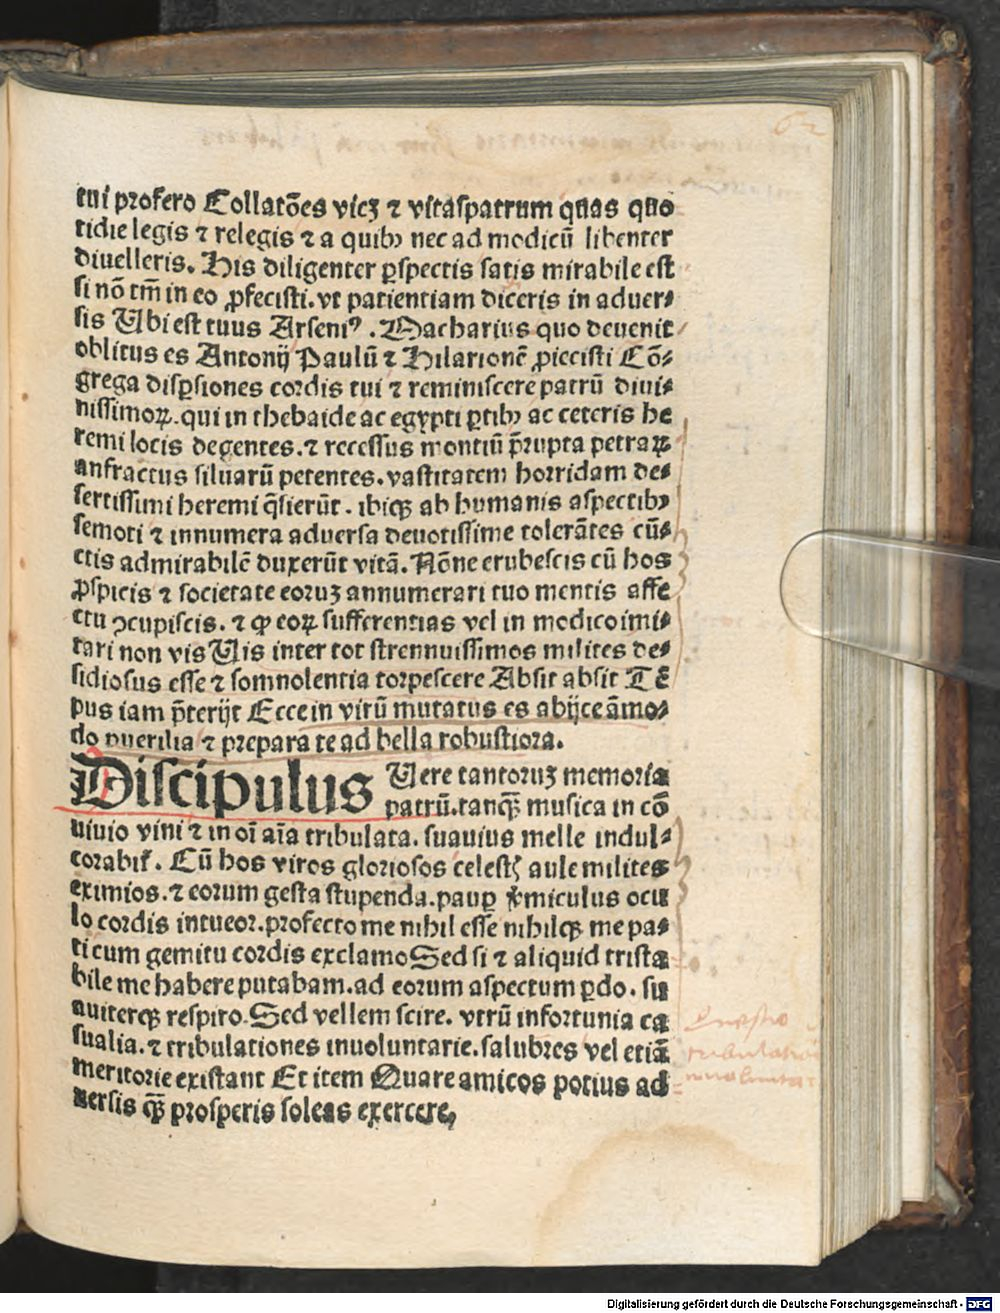 62
tui profero Collatões vicꝫ ⁊ vitaſpatrum quas quo
tidie legis ⁊ relegis ⁊ a quibꝰ nec ad modicū libenter
diuelleris. His diligenter ꝑſpectis ſatis mirabile eſt
ſi nō tm̄ in eo ꝓfeciſti. vt patientiam diceris in aduer⸗
ſis Ubi eſt tuus Arſeniꝰ. Macharius quo deuenit
oblitus es Antonij Paulū ⁊ Hilarionē ꝓieciſti Cō⸗
grega diſꝑſiones cordis tui ⁊ reminiſcere patrū diui⸗
niſſimoꝝ. qui in thebaide ac egypti ꝑtibꝰ ac ceteris he
remi locis degentes. ⁊ receſſus montiū p̄rupta petraꝝ
anfractus ſiluarū petentes. vaſtitatem horridam de⸗
ſertiſſimi heremi q̄ſierūt. ibiqꝫ ab humanis aſpectibꝰ
ſemoti ⁊ innumera aduerſa deuotiſſime tolerātes cū⸗
ctis admirabilē duxerūt vitā. Nōne erubeſcis cū hos
ꝑſpicis ⁊ ſocietate eoruꝫ annumerari tuo mentis affe
ctu ꝯcupiſcis. ⁊ ꝙ eoꝝ ſufferentias vel in modico imi⸗
tari non vis Uis inter tot ſtrennuiſſimos milites de⸗
ſidioſus eſſe ⁊ ſomnolentia torpeſcere Abſit abſit Tē
pus iam p̄terijt Ecce in virū mutatus es abijce āmo⸗
do puerilia ⁊ prepara te ad bella robuſtiora.
Diſcipulus Uere tantoruꝫ memoria
patrū. tanqꝫ̄ muſica in cō
uiuio vini ⁊ in oī aīa tribulata. ſuauius melle indul⸗
corabit̄. Cū hos viros glorioſos celeſtꝭ aule milites
eximios. ⁊ eorum geſta ſtupenda. pauꝑ v̄miculus ocu
lo cordis intueor. profecto me nihil eſſe nihilqꝫ me pa⸗
ti cum gemitu cordis exclamo Sed ſi ⁊ aliquid triſta
bile me habere putabam. ad eorum aſpectum ꝑdo. ſu
auiterqꝫ reſpiro. Sed vellem ſcire. vtrū infortunia ca
ſualia. ⁊ tribulationes inuoluntarie. ſalubres vel etiā
meritorie exiſtant Et item Quare amicos potius ad
uerſis qꝫ̄ proſperis ſoleas exercere,
Digitalisierung gefördert durch die Deutsche Forschungsgemeinschaft - DFG